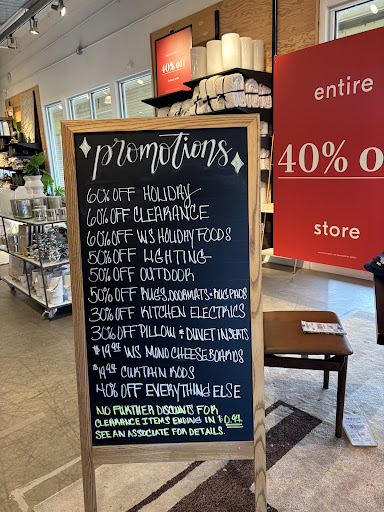 40% off
entire
40% o
store
promotions
60% OFF HOLIDAY
60% OFF CLEARANCE
60% OFF WS HOLIDAY FOODS
50% OFF LIGHTING
50% OFF OUTDOOR
50% OFF RUGS, DOORMATS & RUG PADS
30% OFF KITCHEN ELECTRICS
30% OFF PILLOW & DUVET INSERTS
$19.99 WS MONO CHEESEBOARDS
$19.99 CURTAIN RODS
40% OFF EVERYTHING ELSE
NO FURTHER DISCOUNTS FOR
CLEARANCE ITEMS ENDING IN $0.97
SEE AN ASSOCIATE FOR DETAILS.